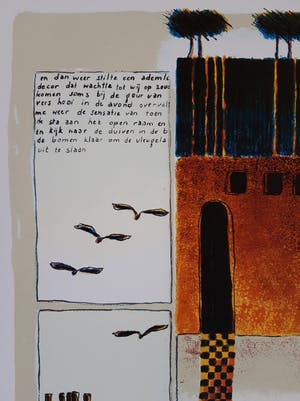 en dan weer stilte een ademlo
decor dat wachtte tot wij op
komen soms bij de geur van
vers hooi in de avond overval
me weer de sensatie van toen
ik sta aan het open raam en
en kijk naar de duiven in de b
de bomen klaar om de vleugels
uit te slaan